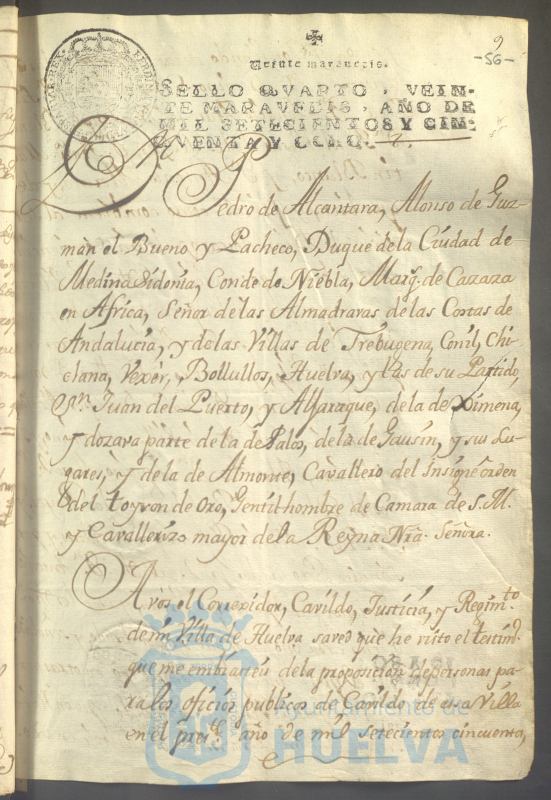 9
-56-
Veinte maravedis.
SELLO QVARTO, VEIN-
TE MARAVEDIS, AÑO DE
MIL SETECIENTOS Y CIN-
QVENTA Y OCHO.
Pedro de Alcantara, Alonso de Guz-
màn el Bueno y Pacheco, Duque dela Ciudad de
Medina Sidonia, Conde de Niebla, Marq.s de Cazaza
en Africa, Señor delas Almadravas delas Costas de
Andalucia, y delas Villas de Trebugena, Conil, Chi-
clana, Vexèr, Bollullos, Huelva, y las de su Partido,
Sn. Juan del Puerto, y Alfaraque, dela de Ximena,
y dozava parte dela de Palos, dela de Gausin, y sus Lu-
gares, y dela de Almonte, Cavallero del Insigne orden
del toyson de Oro, Gentilhombre de Camara de S. M.
y Cavallerizo mayor dela Reyna Nrâ. Señora.
A vos el Correxidor, Cavildo, Justicia, y Regim.to
de mi Villa de Huelva saved que he visto el testim.o
que me embiasteis dela proposicion de personas pa-
ra los oficios publicos de Cavildo de esa Villa
en el pres.te año de mil setecientos cincuenta,
Ayuntamiento de
HUELVA